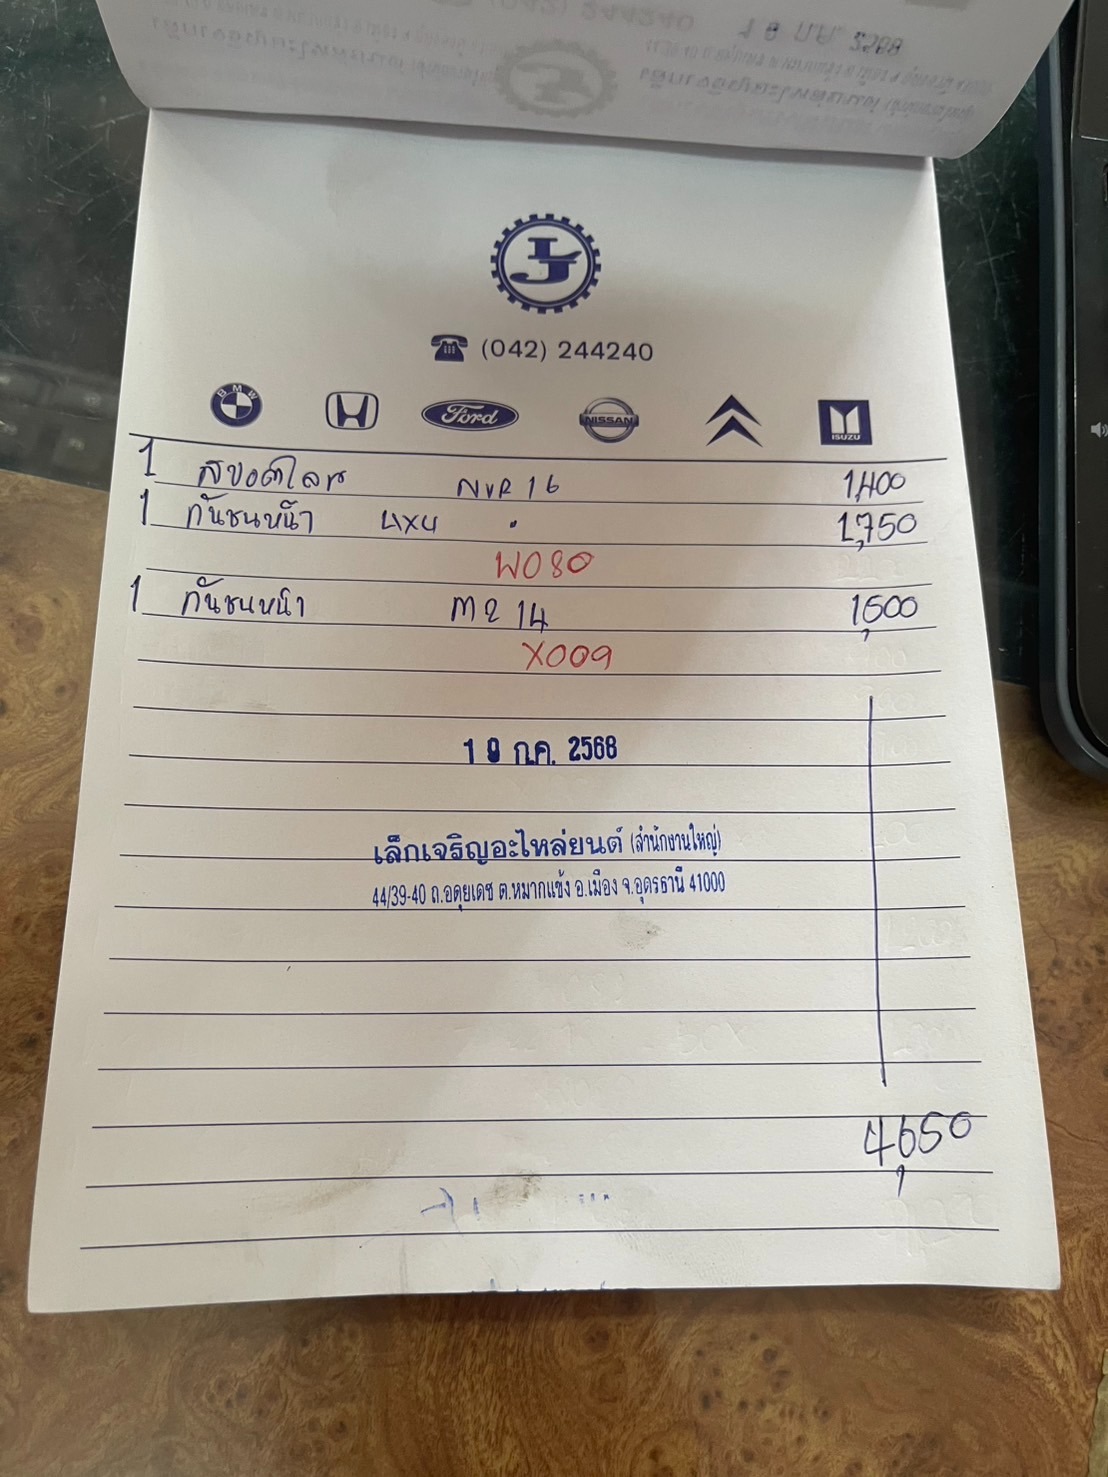 (042) 244240
BMW
Ford
NISSAN
ISUZU
1 NVR 16 1,400
1 กันชนหน้า 4x4 1,750
W080
1 กันชนหน้า M2 14 1,500
X009
19 ก.ค. 2568
เล็กเจริญอะไหล่ยนต์ (สำนักงานใหญ่)
44/39-40 ถ.อดุยเดช ต.หมากแข้ง อ.เมือง จ.อุดรธานี 41000
4,650